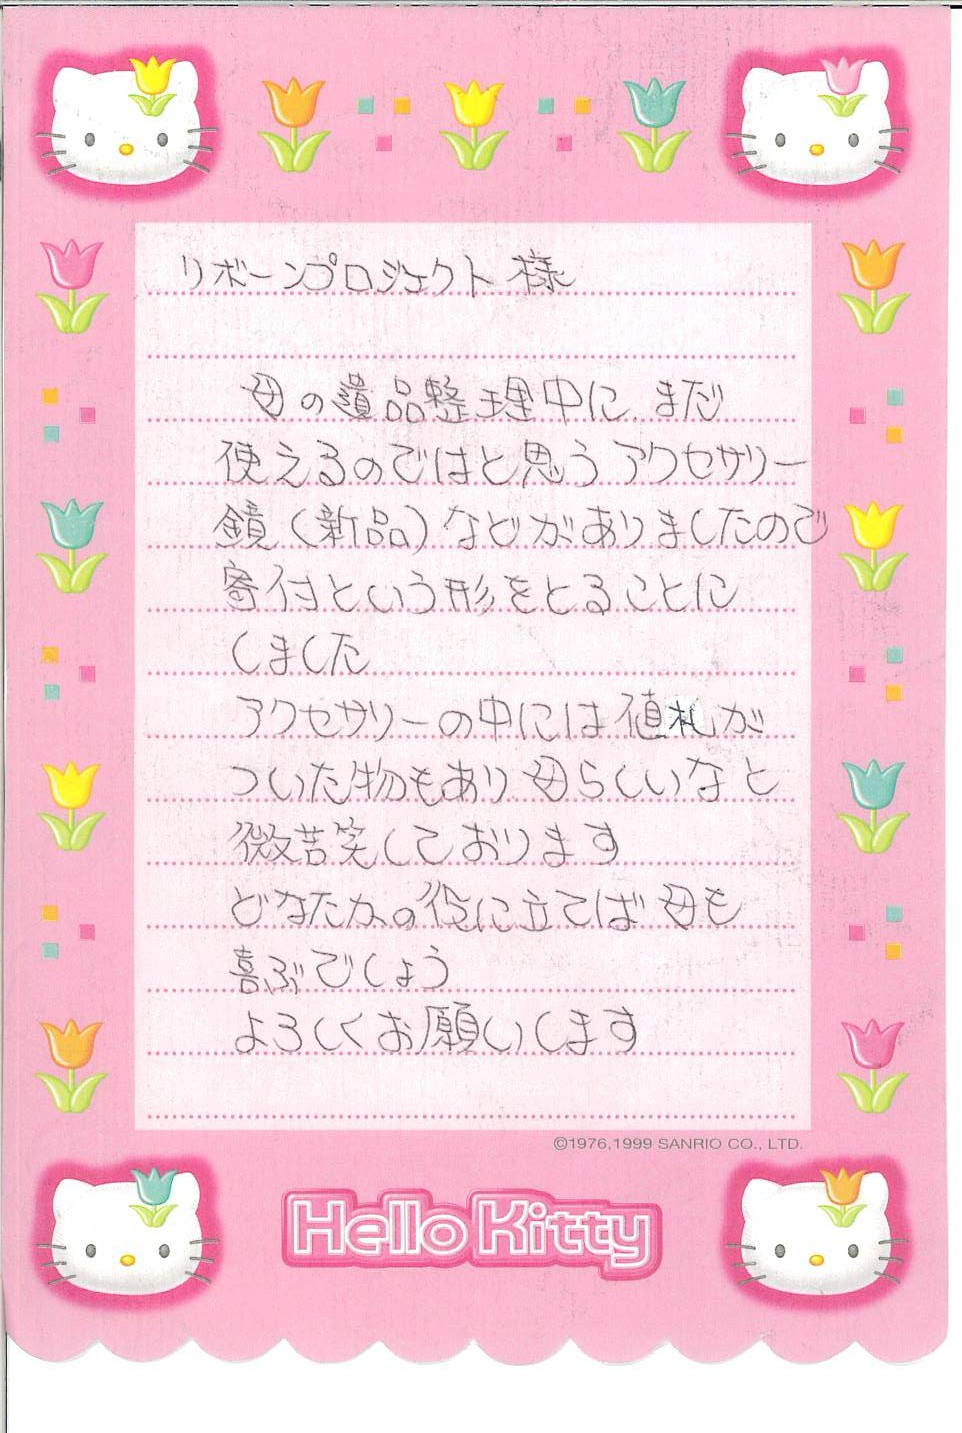 リボーンプロジェクト 様
母の遺品整理中に まだ
使えるのではと思う アクセサリー
鏡（新品）などがありましたので
寄付という形をとることに
しました
アクセサリーの中には値札が
ついた物もあり 母らしいなと
微苦笑しております
どなたかの役に立てば 母も
喜ぶでしょう
よろしくお願いします
©1976,1999 SANRIO CO., LTD.
Hello Kitty